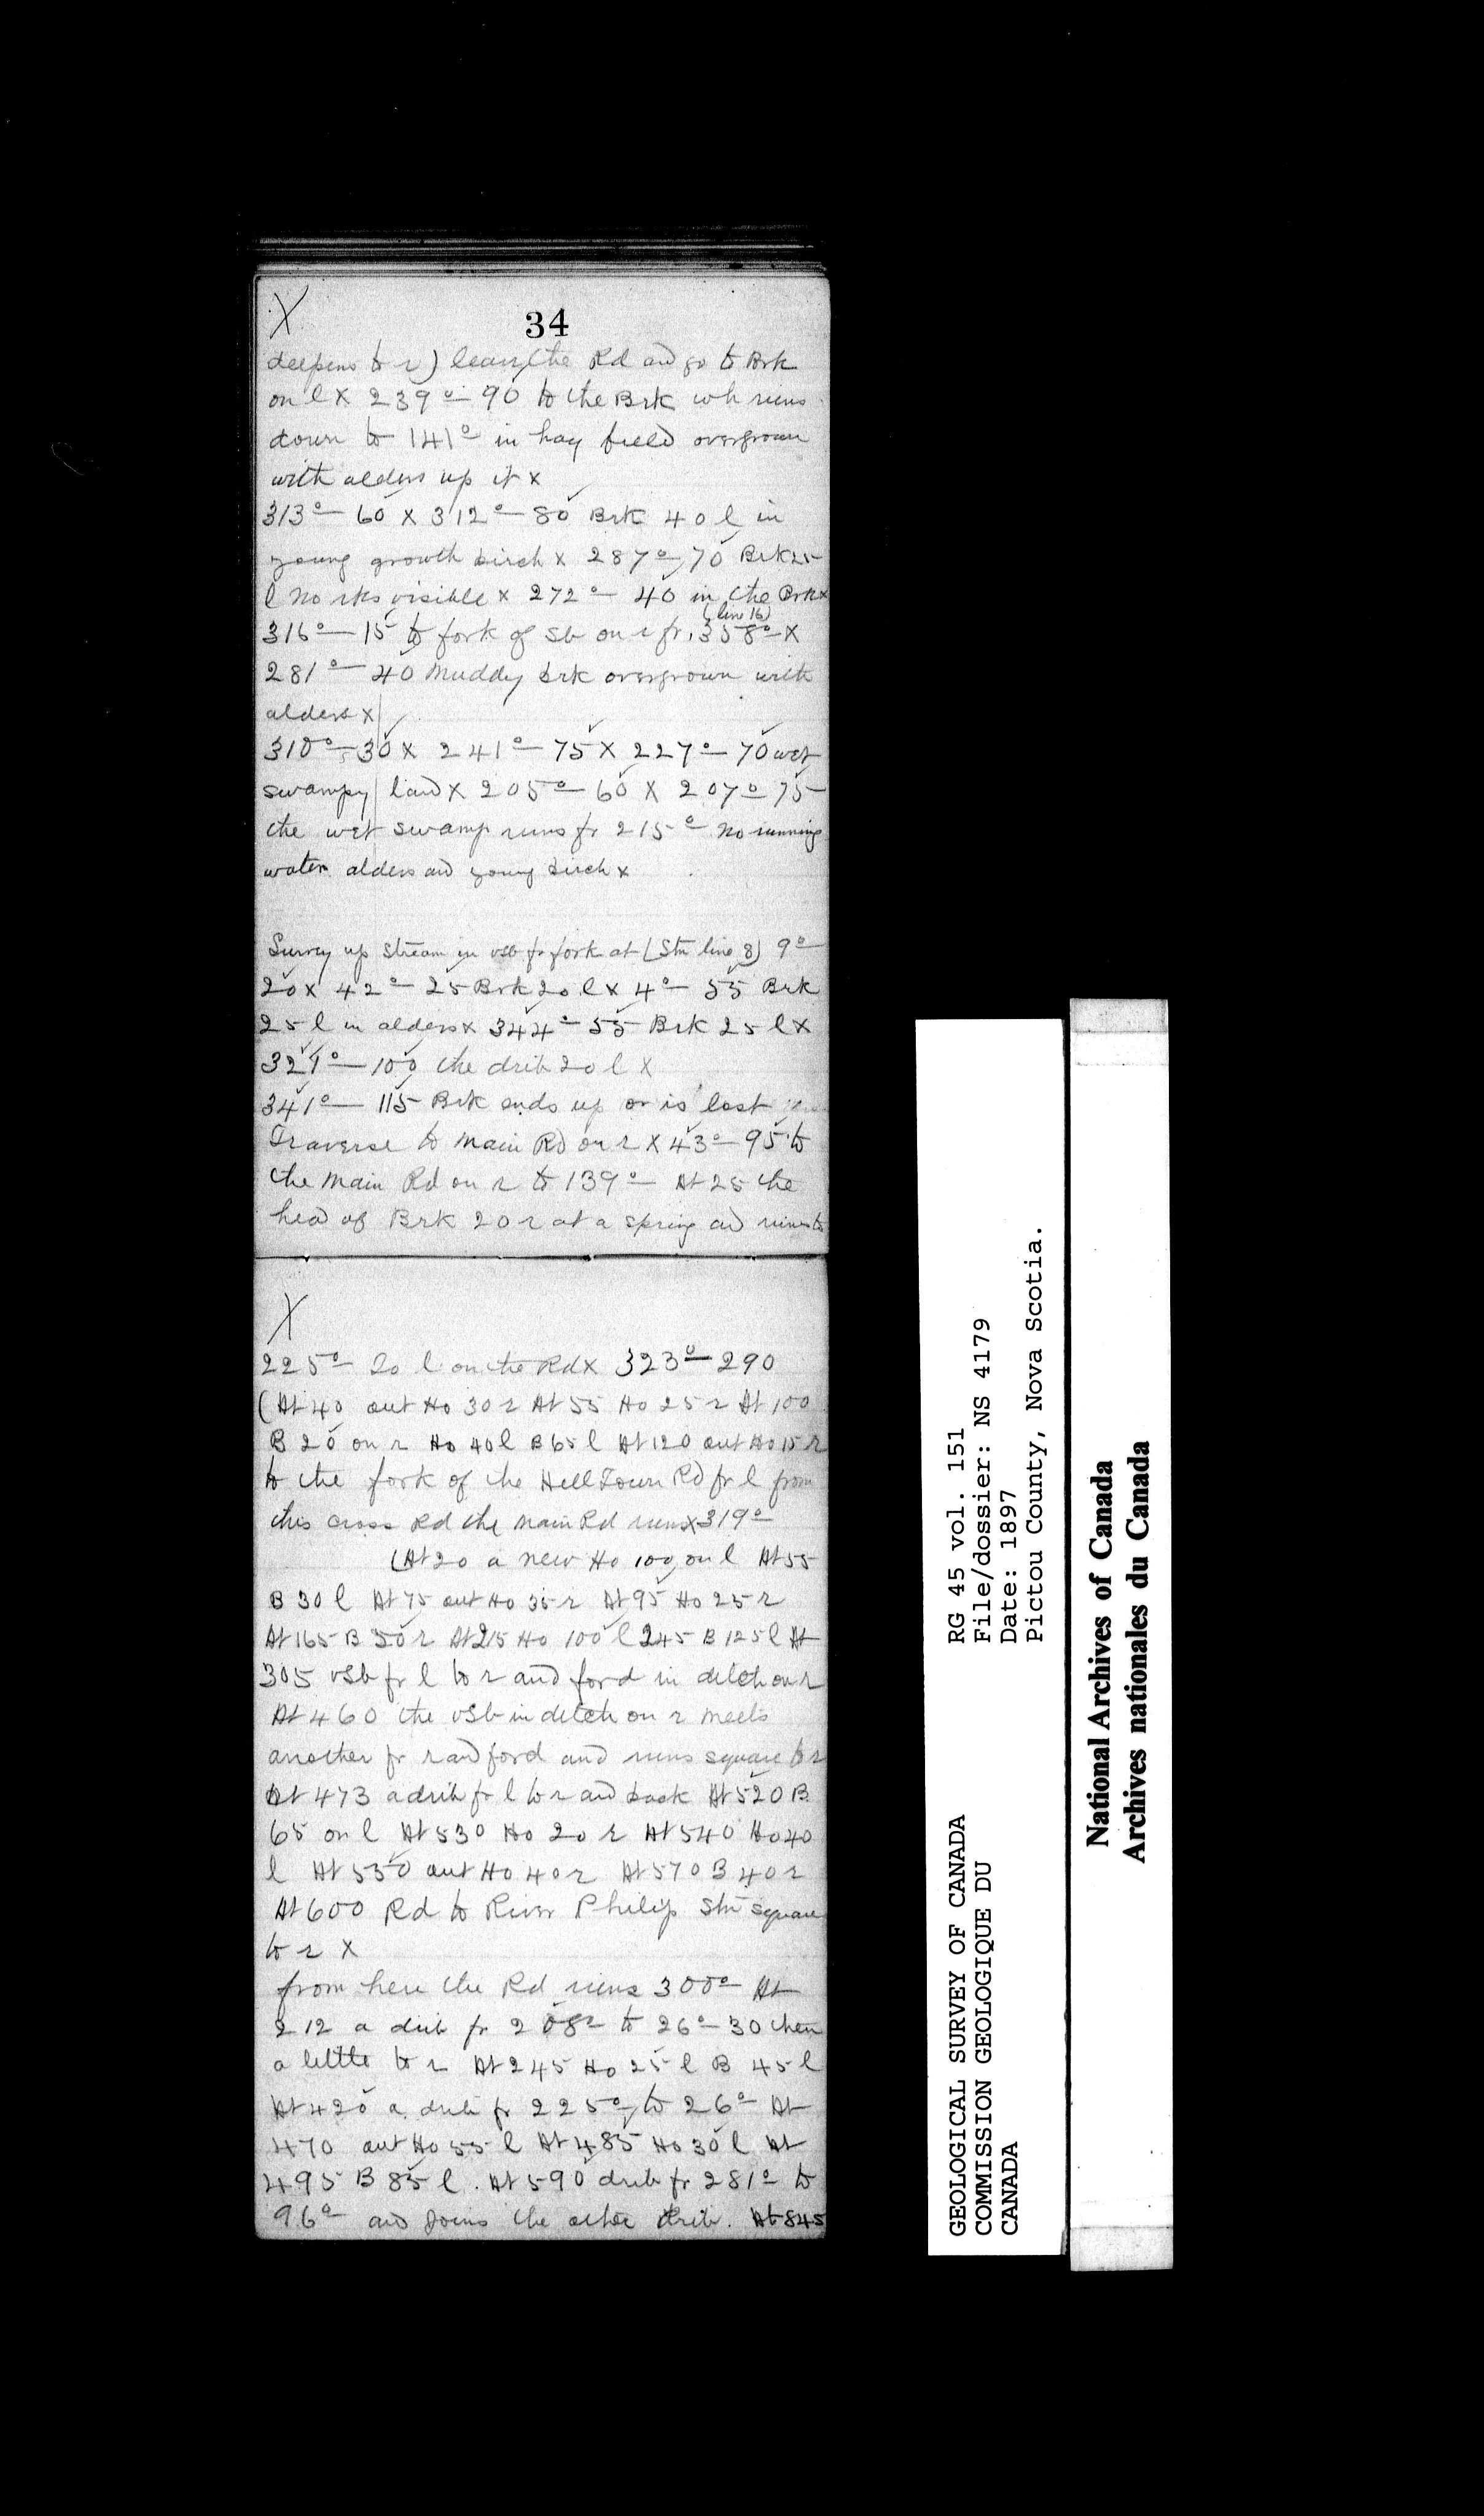 X
34
deepens to r) leaving the Rd and go to Brk
on l x 239° — 90 to the Brk wh runs
down to 141° in hay field overgrown
with alders up it x
313° — 60 x 312° — 80 Brk 40 l in
young growth birch x 287° — 70 Brk 25
l No rks visible x 272° — 40 in the Brk x
(line 16)
316° — 15 to fork of sb on r fr 358° x
281° — 40 Muddy brk overgrown with
alders x
310° — 30 x 241° — 75 x 227° — 70 wet
swampy land x 205° — 60 x 207° 75
the wet swamp runs fr 215° No running
water alders and young birch x
Survey up stream in vsb fr fork at (Stn line 8) 9°
20 x 42° — 25 Brk 20 l x 4° — 55 Brk
25 l in alders x 344° — 55 Brk 25 l x
329° — 100 the drib 20 l x
341° — 115 Brk ends up or is lost
Traverse to Main Rd on r x 43° — 95 to
the Main Rd on r to 139° At 25 the
head of Brk 20 r at a spring and runs to
X
225° 20 l on the Rd x 323° — 290
(At 40 out Ho 30 r At 55 Ho 25 r At 100
B 20 on r Ho 40 l B 65 l At 120 out Ho 15 r
to the fork of the Hell Town Rd fr l from
this cross Rd the Main Rd runs x 319°
(At 20 a new Ho 100 on l At 55
B 30 l At 75 out Ho 35 r At 95 Ho 25 r
At 165 B 50 r At 215 Ho 100 l 245 B 125 l At
305 vsb fr l to r and ford in ditch on r
At 460 the vsb in ditch on r meets
another fr r and ford and runs square to r
At 473 a drib fr l to r and back At 520 B
65 on l At 530 Ho 20 r At 540 Ho 40
l At 550 out Ho 40 r At 570 B 40 r
At 600 Rd to River Philip Stn square
to r x
from here the Rd runs 300° At
212 a drib fr 208° to 26° — 30 then
a little to r At 245 Ho 25 l B 45 l
At 420 a drib fr 225° to 26° At
470 out Ho 55 l At 485 Ho 30 l At
495 B 85 l. At 590 drib fr 281° to
96° and joins the other drib. At 845
GEOLOGICAL SURVEY OF CANADA
COMMISSION GEOLOGIQUE DU
CANADA
RG 45 vol. 151
File/dossier: NS 4179
Date: 1897
Pictou County, Nova Scotia.
National Archives of Canada
Archives nationales du Canada